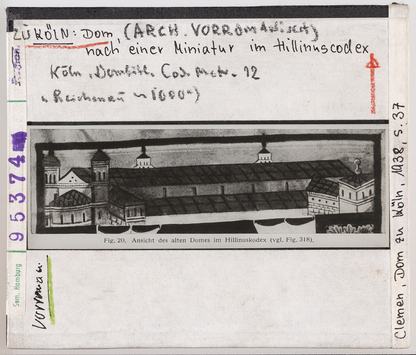 ZU KÖLN: Dom, (ARCH. VORROMANISCH)
nach einer Miniatur im Hillinuscodex
Köln, Dombibl. Cod. Metr. 12
"Reichenau ~ 1000")
95374
Fig. 20. Ansicht des alten Domes im Hillinuscodex (vgl. Fig. 318).
Sem. Hamburg
Vorroman.
Clemen, Dom zu Köln, 1938, S. 37